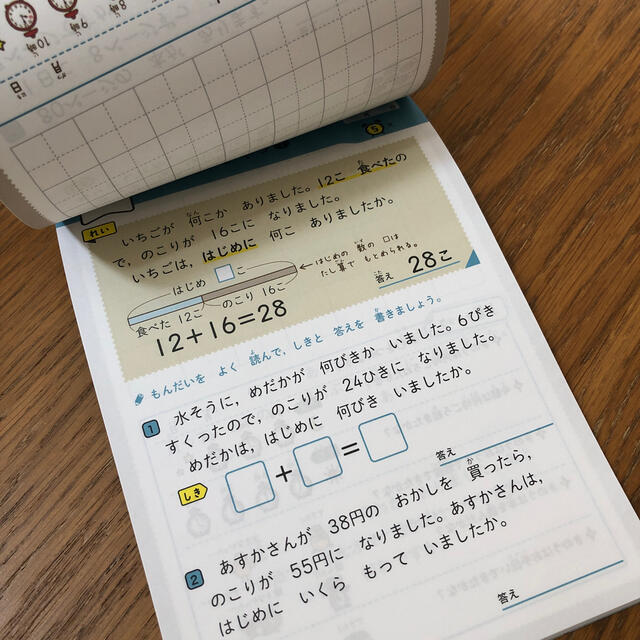 10時
9時
8時
月
日
5
れい
いちごが 何こか ありました。12こ 食べたの
で,のこりが 16こに なりました。
いちごは,はじめに 何こ ありましたか。
はじめ □こ
食べた 12こ
のこり 16こ
はじめの 数の □は
たし算で もとめられる。
12+16=28
答え 28こ
もんだいを よく 読んで,しきと 答えを 書きましょう。
1
水そうに,めだかが 何びきか いました。6ぴき
すくったので,のこりが 24ひきに なりました。
めだかは,はじめに 何びき いましたか。
しき
□+□=□
答え
2
あすかさんが 38円の おかしを 買ったら,
のこりが 55円に なりました。あすかさんは,
はじめに いくら もって いましたか。
答え